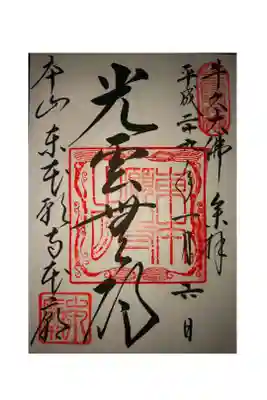 牛久大佛 参拝
平成二十六年一月六日
光雲無碍
本山 東本願寺本廟